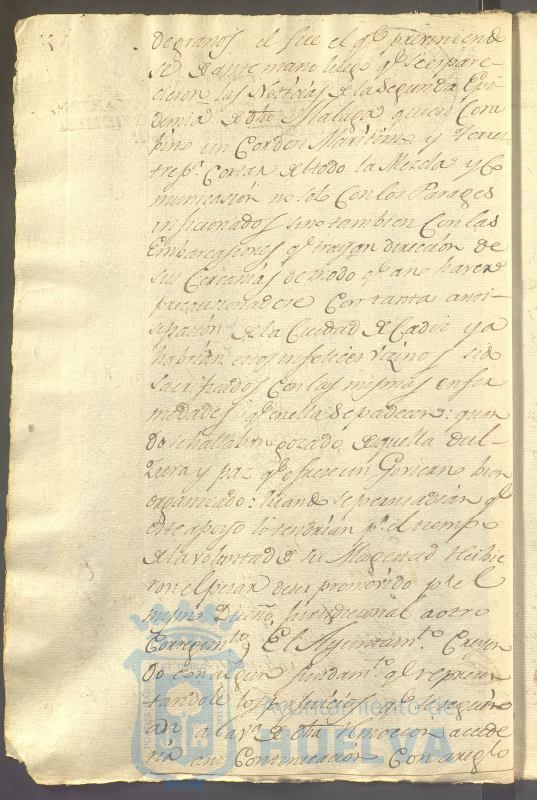 de granos el fue el qe previniendo
se de antemano luego qe se espare
cieron las Noticias de la Segunda Epi
demia de dha Malaga quien
puso un Cordon Maritimo y Terres
tre pa Cortar de todo la Mezcla y Co
municasion no solo Con los Parages
inficionados sino tambien Con las
Embarcasiones qe traigan direccion de
sus Cercanias de modo qe a no haverse
precaucionadose Con tanta anti
sipasion de la Ciudad de Cadiz ya
habrian estos infelices vezinos sido
sacrificados con las mismas enfer
medades qe en ella se padecen: quan
do se hallaban gozado de aquella dul
zura y paz qe ofrece un Govierno bien
organizado: cuando se persuadian qe
este apoyo lo tendrian pr el tiempo
de la voluntad de su Magestad recibie
ron el pesar de ser promovido pr el
mismo Dueño Jurisdicional a otro
Corregimto, El Ayuntamto Creyen
do con algun fundamto qe represen
tandole los perjuicios qe se seguiri
an a la va de dha remocion accede
ria a su Continuacion Con areglo
Ayuntamiento de
HUELVA